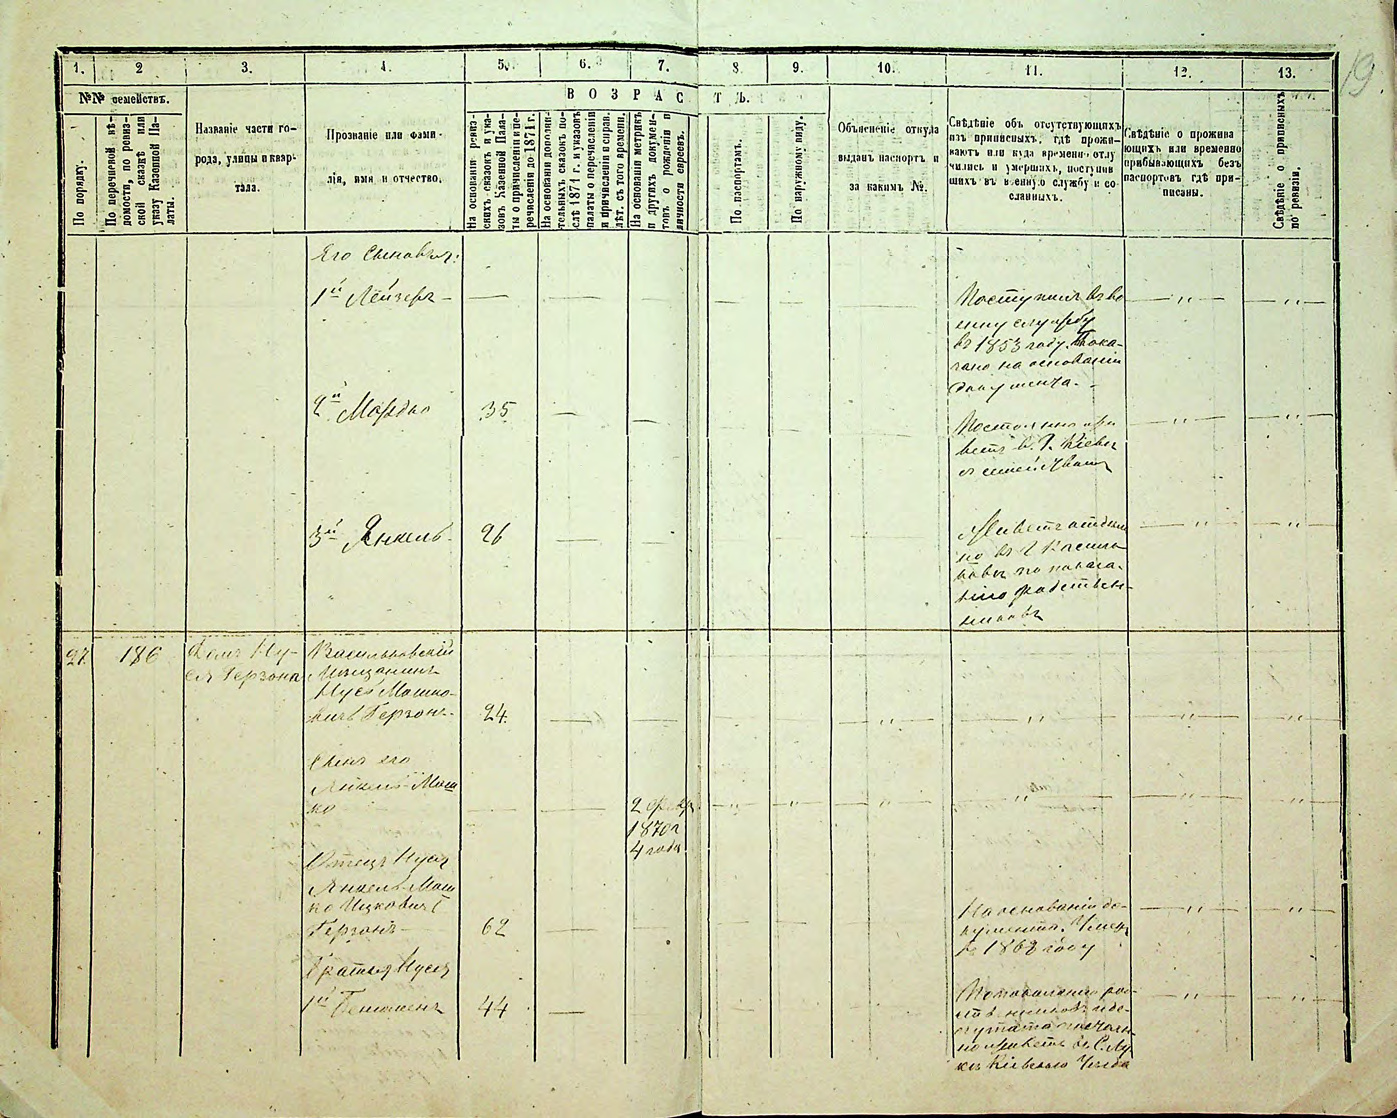 19
1. 2 3. 4. 5. 6. 7. 8. 9. 10. 11. 12. 13.
№№ семействъ.
По порядку.
По перечневой вѣ-
домости, по ревиз-
ской сказкѣ или
указу Казенной Па-
латы.
Названіе части го-
рода, улицы и квар-
тала.
Прозваніе или фами-
лія, имя и отчество.
ВОЗРАСТЪ.
На основаніи ревиз-
скихъ сказокъ и ука-
зовъ Казенной Пала-
ты о причисленіи и пе-
речисленіи до 1871 г.
На основаніи дополни-
тельныхъ сказокъ по-
слѣ 1871 г. и указовъ
палаты о перечисленіи
и причисленіи и справ.
лѣт. съ того времени.
На основаніи метрикъ
и другихъ докумен-
товъ о рожденіи и
личности евреевъ.
По паспортамъ.
По наружному виду.
Объясненіе откуда
выданъ паспортъ и
за какимъ №.
Свѣдѣніе объ отсутствующихъ
изъ приписныхъ, гдѣ прожи-
ваютъ или куда временно отлу
чились и умершихъ, поступив
шихъ въ военную службу и со
сланныхъ.
Свѣдѣніе о прожива
ющихъ или временно
прибывающихъ безъ
паспортовъ гдѣ при-
писаны.
Свѣдѣніе о приписныхъ
по ревизіи.
Его Сыновья:
1й Лейзеръ — — — — „ — — „ —
Поступилъ въ во
енну службу
въ 1853 году. Пока-
зано на основаніи
документа.
2й Мордко 35 — — — „ — — „ —
Постоянно жи
ветъ в. Г. Кіевѣ
съ семействомъ
3й Янкель 26 — — — „ — — „ —
Живетъ отдѣль
но въ Г Василь
ковѣ по показа-
нію родствен-
никовъ
27. 186 Домъ Ну-
ся Герзона
Васильковскій
Мѣщанинъ
Нусь Мошко-
вичъ Герзонъ 24. — — — — — „ — — „ — — „ — — „ —
Сынъ его
Янкель Мош
ко — — 2 февр
1870 г
4 года
Отецъ Нуся
Янкель-Мош
ко Ицковичъ
Герзонъ 62 — — — — — — „ — — „ —
На основаніи до-
кумента. Умеръ
въ 1862 году
Братья Нуся
1й Беньоменъ 44 — — — — „ — — „ —
но живетъ въ С.
Кіевскаго Уезда